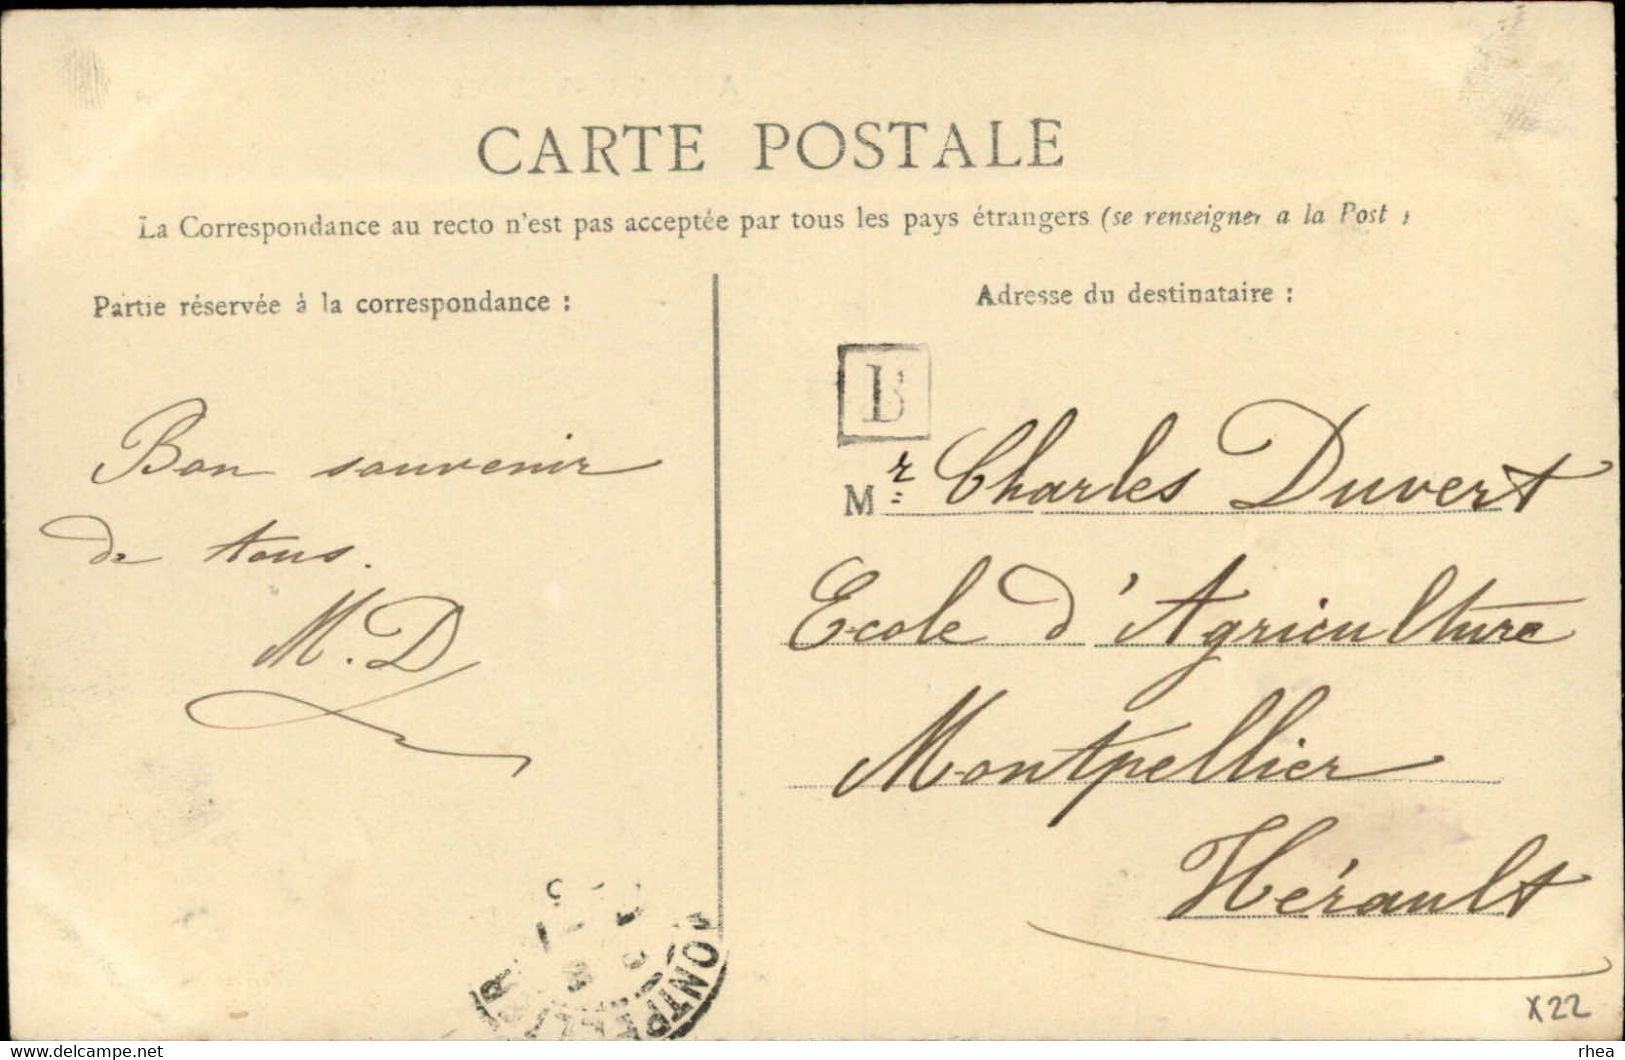 CARTE POSTALE
La Correspondance au recto n'est pas acceptée par tous les pays étrangers (se renseigner a la Post
Partie réservée à la correspondance :
Bon souvenir
de tous.
M.D
Adresse du destinataire :
B
Mr Charles Duvert
Ecole d'Agriculture
Montpellier
Hérault
MONTPELLIER
X22
delcampe.net
rhea